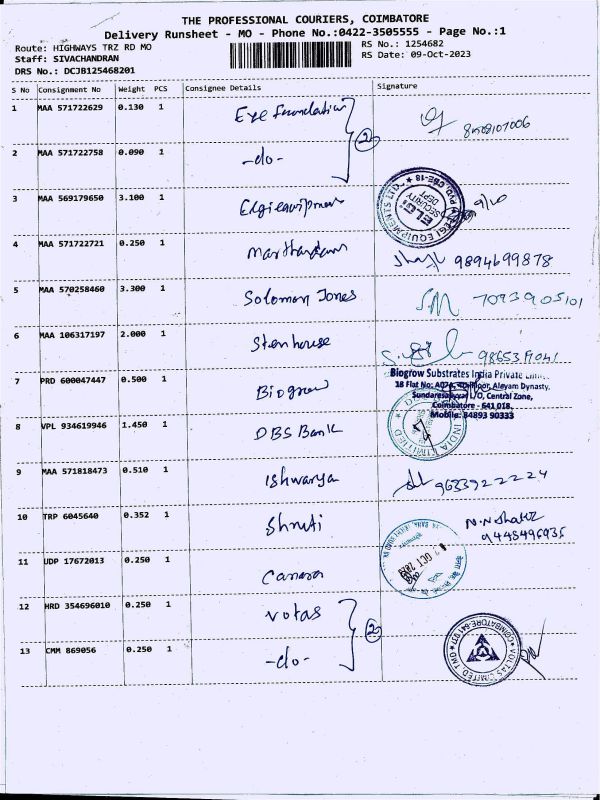 THE PROFESSIONAL COURIERS, COIMBATORE
Delivery Runsheet - MO - Phone No.:0422-3505555 - Page No.:1
Route: HIGHWAYS TRZ RD MO
RS No.: 1254682
Staff: SIVACHANDRAN
RS Date: 09-Oct-2023
DRS No.: DCJB125468201
S No Consignment No Weight PCS Consignee Details Signature
1 MAA 571722629 0.130 1 Eye Foundation
2 MAA 571722758 0.090 1 -do-
2
3 MAA 569179650 3.100 1 Elgi equipment
ELGI EQUIPMENTS LTD
SECURITY DEPT
4 MAA 571722721 0.250 1 Marthandam 9894699878
5 MAA 570258460 3.300 1 Solomon Jones SM 7093905101
6 MAA 106317197 2.000 1 Stenhouse
7 PRD 600047447 0.500 1 Biogrow
Biogrow Substrates India Private
18 Flat No: Aleyam Dynasty,
L/O, Central Zone,
Coimbatore - 641 018.
Mobile: 84893 90333
8 VPL 934619946 1.450 1 DBS Bank
INDIA LIMITED
9 MAA 571818473 0.510 1 Ishwarya 9633922224
10 TRP 6045640 0.352 1 Shruti 9448496935
11 UDP 17672013 0.250 1 Canara
OCT 2023
12 HRD 354696010 0.250 1 Votas
13 CMM 869056 0.250 1 -do-
2
VOLTAS LIMITED
COIMBATORE-641 037